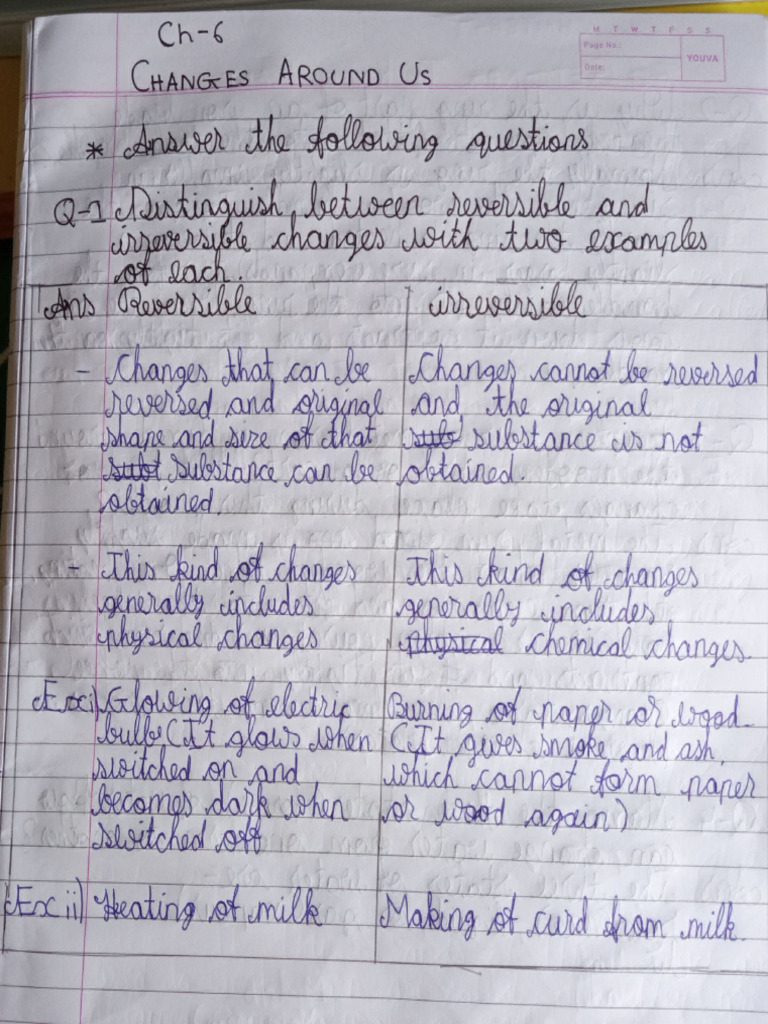 Ch-6
M T W T F S S
Page No.:
YOUVA
Date:
CHANGES AROUND US
* Answer the following questions
Q-1 Distinguish between reversible and
irreversible changes with two examples
of each.
Ans Reversible
- Changes that can be
reversed and original
shape and size of that
subt substance can be
obtained.
- This kind of changes
generally includes
physical changes
Ex i) Glowing of electric
bulb (It glows when
switched on and
becomes dark when
switched off
Ex ii) Heating of milk
irreversible
Changes cannot be reversed
and the original
sub substance is not
obtained.
This kind of changes
generally includes
physical chemical changes.
Burning of paper or wood
(It gives smoke and ash,
which cannot form paper
or wood again)
Making of curd from milk.